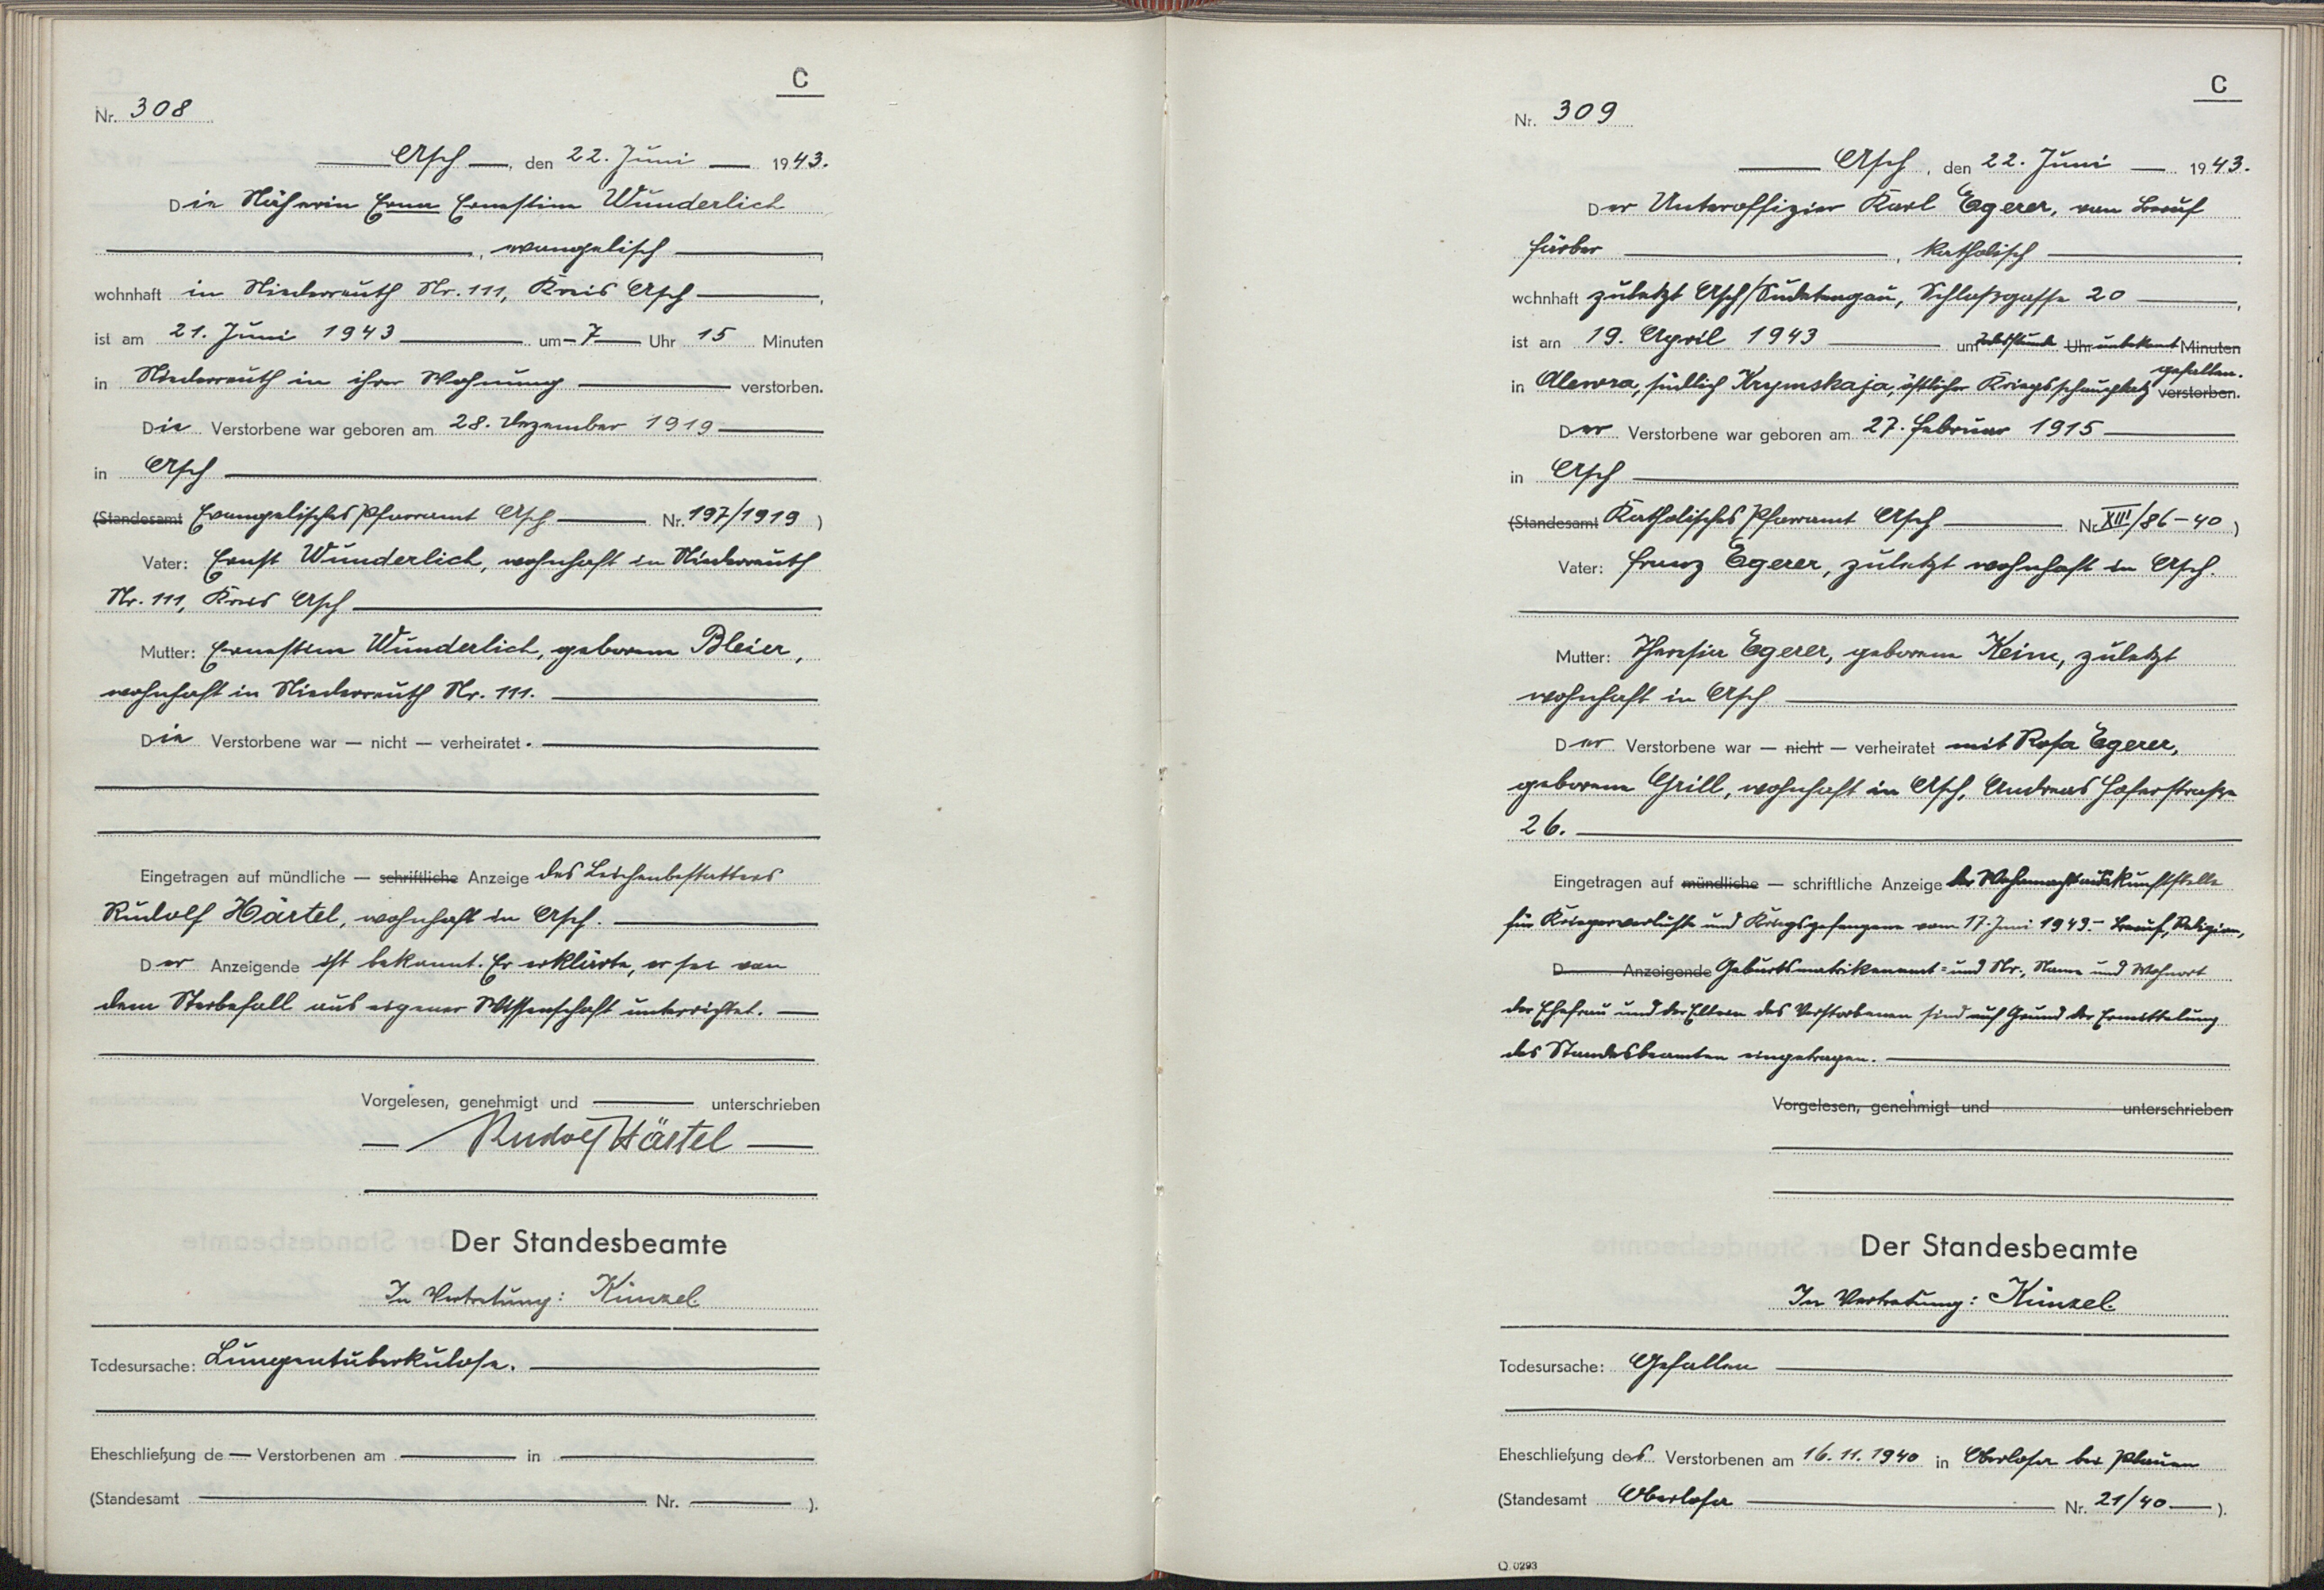 C
Nr. 308
Asch, den 22. Juni 1943.
Die Näherin Erna Ernestine Wunderlich
, evangelisch
wohnhaft in Niederreuth Nr. 111, Kreis Asch,
ist am 21. Juni 1943 um 7 Uhr 15 Minuten
in Niederreuth in ihrer Wohnung verstorben.
Die Verstorbene war geboren am 28. Dezember 1919
in Asch
(Standesamt Evangelisches Pfarramt Asch Nr. 197/1919)
Vater: Ernst Wunderlich, wohnhaft in Niederreuth
Nr. 111, Kreis Asch
Mutter: Ernestine Wunderlich, geborene Bleier,
wohnhaft in Niederreuth Nr. 111.
Die Verstorbene war — nicht — verheiratet.
Eingetragen auf mündliche — schriftliche Anzeige des Leichenbestatters
Rudolf Härtel, wohnhaft in Asch.
Der Anzeigende ist bekannt. Er erklärte, er sei von
dem Sterbefall aus eigener Wissenschaft unterrichtet.
Vorgelesen, genehmigt und unterschrieben
Rudolf Härtel
Der Standesbeamte
In Vertretung: Künzel
Todesursache: Lungentuberkulose.
Eheschließung de Verstorbenen am in
(Standesamt Nr. ).
C
Nr. 309
Asch, den 22. Juni 1943.
Der Unteroffizier Karl Egerer, von Beruf
Färber, katholisch,
wohnhaft zuletzt Asch/Sudetengau, Schloßgasse 20,
ist am 19. April 1943 um Todesstunde Uhr unbekannt Minuten
gefallen.
in Alewra, südlich Krymskaja, östlicher Kriegsschauplatz verstorben.
Der Verstorbene war geboren am 27. Februar 1915
in Asch
(Standesamt Katholisches Pfarramt Asch Nr. XIII/86-40)
Vater: Franz Egerer, zuletzt wohnhaft in Asch.
Mutter: Theresia Egerer, geborene Keim, zuletzt
wohnhaft in Asch.
Der Verstorbene war — nicht — verheiratet mit Rosa Egerer,
geborene Grill, wohnhaft in Asch, Andreas Hoferstraße
26.
Eingetragen auf mündliche — schriftliche Anzeige der Wehrmachtauskunftstelle
für Kriegerverluste und Kriegsgefangene vom 17. Juni 1943.- Beruf, Religion,
D Anzeigende Geburtsmatrikenamt= und Nr., Name und Wohnort
der Ehefrau und der Eltern des Verstorbenen sind auf Grund der Ermittelung
des Standesbeamten eingetragen.
Vorgelesen, genehmigt und unterschrieben
Der Standesbeamte
In Vertretung: Künzel.
Todesursache: Gefallen
Eheschließung des Verstorbenen am 16.11.1940 in Oberlosa bei Plauen
(Standesamt Oberlosa Nr. 21/40).
Q 0293